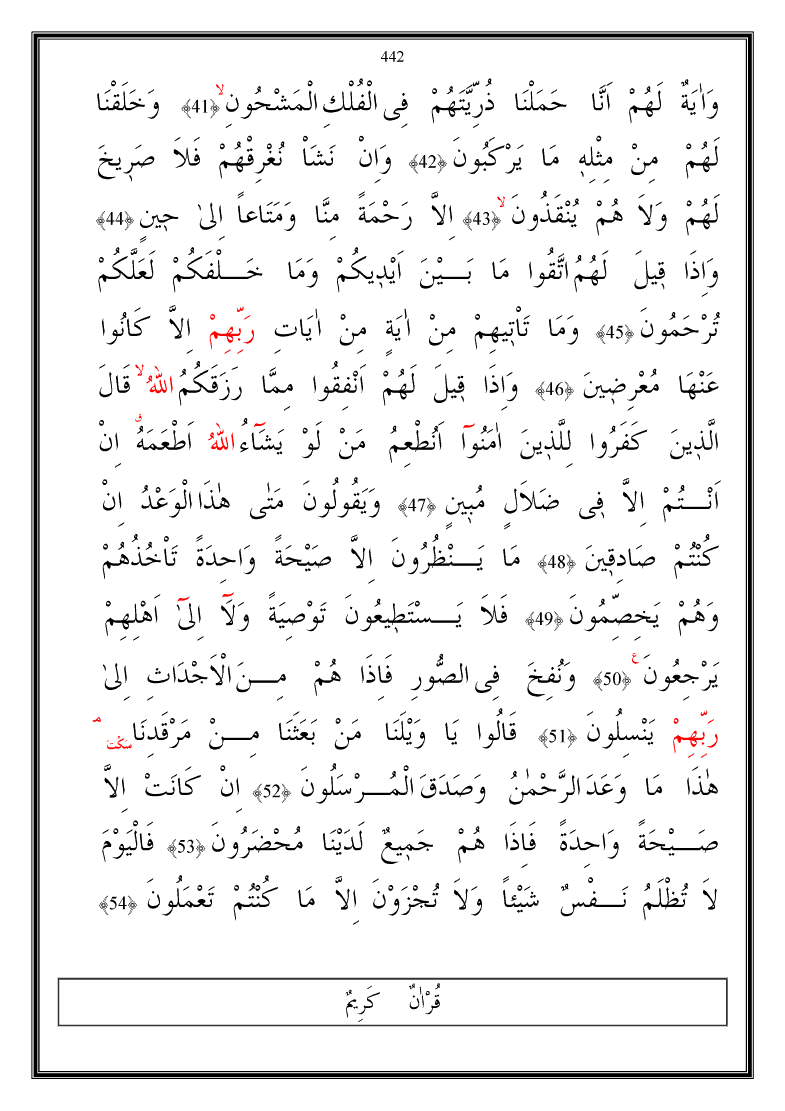 442
وَاٰيَةٌ لَهُمْ اَنَّا حَمَلْنَا ذُرِّيَّتَهُمْ فِى الْفُلْكِ الْمَشْحُونِۙ ﴿41﴾ وَخَلَقْنَا
لَهُمْ مِنْ مِثْلِهٖ مَا يَرْكَبُونَ ﴿42﴾ وَاِنْ نَشَاْ نُغْرِقْهُمْ فَلاَ صَرٖيخَ
لَهُمْ وَلاَ هُمْ يُنْقَذُونَۙ ﴿43﴾ اِلاَّ رَحْمَةً مِنَّا وَمَتَاعاً اِلىٰ حٖينٍ ﴿44﴾
وَاِذَا قٖيلَ لَهُمُ اتَّقُوا مَا بَـــيْنَ اَيْدٖيكُمْ وَمَا خَـــلْفَكُمْ لَعَلَّكُمْ
تُرْحَمُونَ ﴿45﴾ وَمَا تَاْتٖيهِمْ مِنْ اٰيَةٍ مِنْ اٰيَاتِ رَبِّهِمْ اِلاَّ كَانُوا
عَنْهَا مُعْرِضٖينَ ﴿46﴾ وَاِذَا قٖيلَ لَهُمْ اَنْفِقُوا مِمَّا رَزَقَكُمُ اللّٰهُۙ قَالَ
الَّذٖينَ كَفَرُوا لِلَّذٖينَ اٰمَنُوٓا اَنُطْعِمُ مَنْ لَوْ يَشَٓاءُ اللّٰهُ اَطْعَمَهُۗ اِنْ
اَنْـــتُمْ اِلاَّ فٖى ضَلاَلٍ مُبٖينٍ ﴿47﴾ وَيَقُولُونَ مَتٰى هٰذَا الْوَعْدُ اِنْ
كُنْتُمْ صَادِقٖينَ ﴿48﴾ مَا يَـــنْظُرُونَ اِلاَّ صَيْحَةً وَاحِدَةً تَاْخُذُهُمْ
وَهُمْ يَخِصِّمُونَ ﴿49﴾ فَلاَ يَـــسْتَطٖيعُونَ تَوْصِيَةً وَلَٓا اِلىٰٓ اَهْلِهِمْ
يَرْجِعُونَ ع ﴿50﴾ وَنُفِخَ فِى الصُّورِ فَاِذَا هُمْ مِـــنَ الْاَجْدَاثِ اِلىٰ
رَبِّهِمْ يَنْسِلُونَ ﴿51﴾ قَالُوا يَا وَيْلَنَا مَنْ بَعَثَنَا مِـــنْ مَرْقَدِنَا سَكْتَ ۢ
هٰذَا مَا وَعَدَ الرَّحْمٰنُ وَصَدَقَ الْمُـــرْسَلُونَ ﴿52﴾ اِنْ كَانَتْ اِلاَّ
صَـــيْحَةً وَاحِدَةً فَاِذَا هُمْ جَمٖيعٌ لَدَيْنَا مُحْضَرُونَ ﴿53﴾ فَالْيَوْمَ
لاَ تُظْلَمُ نَـــفْسٌ شَيْئاً وَلاَ تُجْزَوْنَ اِلاَّ مَا كُنْتُمْ تَعْمَلُونَ ﴿54﴾
قُرْاٰنٌ كَرِيمٌ